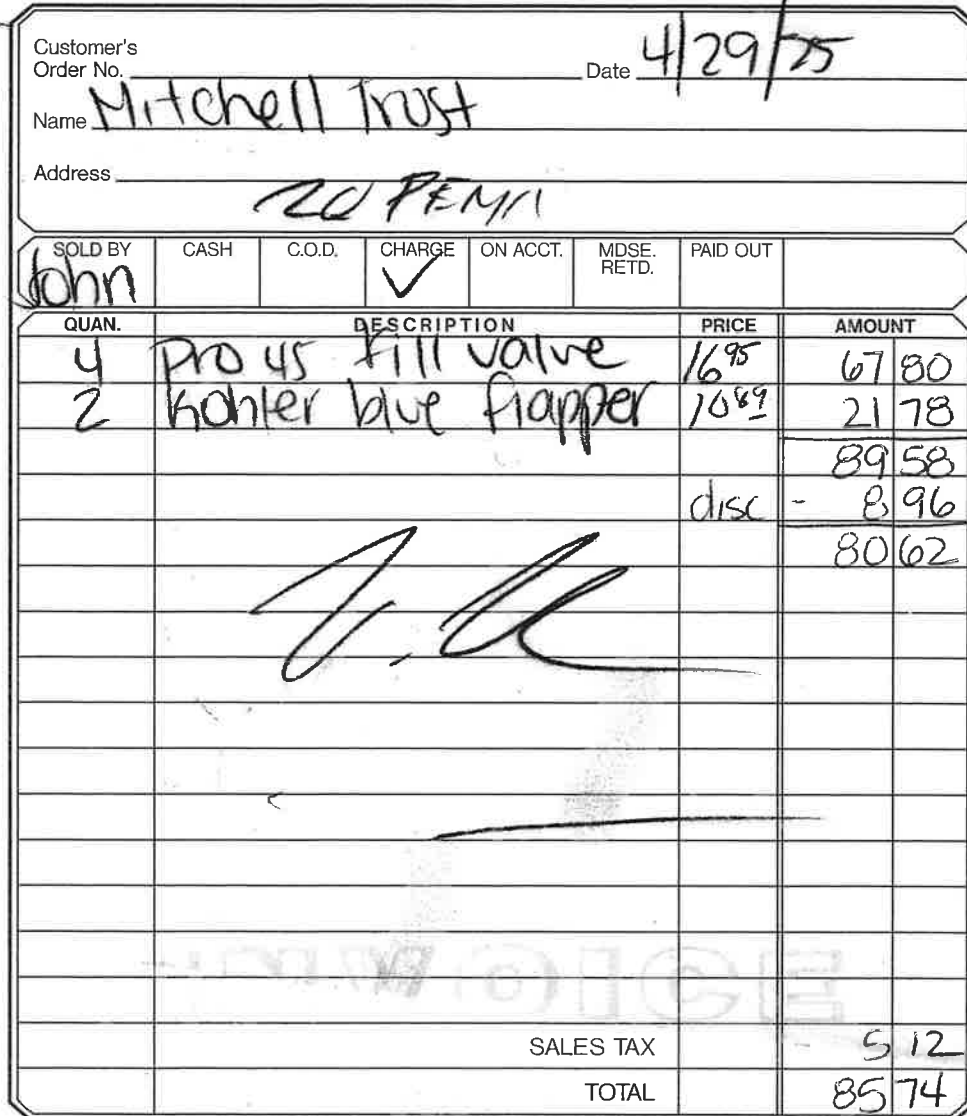 Customer's
Order No.
Date 4/29/25
Name Mitchell Trust
Address
20 PEMA
SOLD BY CASH C.O.D. CHARGE ON ACCT. MDSE. RETD. PAID OUT
John ✓
QUAN. DESCRIPTION PRICE AMOUNT
4 Pro 45 fill valve 16 95 67 80
2 Kohler blue flapper 10 89 21 78
89 58
disc - 8 96
80 62
INVOICE
SALES TAX 5 12
TOTAL 85 74